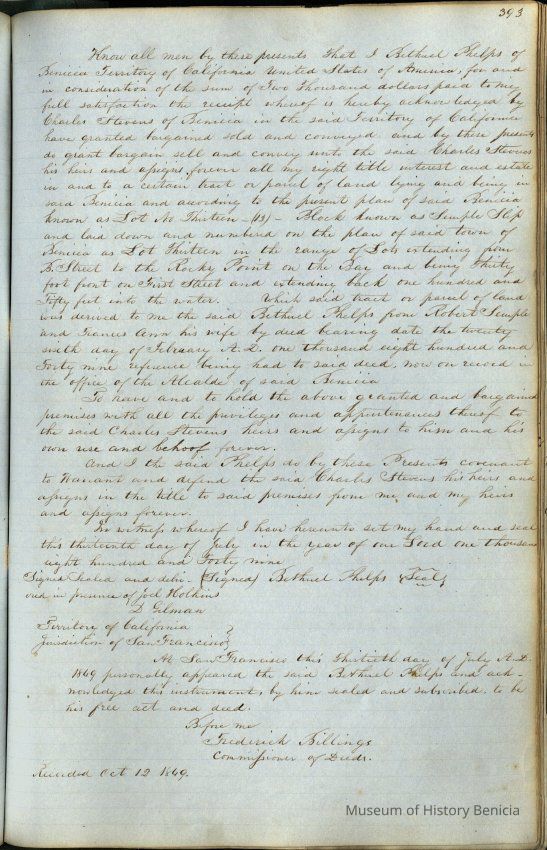 393
Know all men by these presents That I Bethuel Phelps of
Benicia Territory of California United States of America, for and
in consideration of the sum of Two Thousand dollars paid to my
full satisfaction the receipt whereof is hereby acknowledged by
Charles Stevens of Benicia in the said Territory of California
have granted bargained sold and conveyed and by these presents
do grant bargain sell and convey unto the said Charles Stevens
his heirs and assigns forever all my right title interest and estate
in and to a certain tract or parcel of land lying and being in
said Benicia and according to the present plan of said Benicia
known as Lot No Thirteen -(13)- Block known as Semple Slip
and laid down and numbered on the plan of said town of
Benicia as Lot Thirteen in the range of Lots extending from
B. Street to the Rocky Point on the Bay and being Thirty
foot front on First Street and extending back one hundred and
Fifty feet into the water. Which said tract or parcel of land
was derived to me the said Bethuel Phelps from Robert Semple
and Frances Ann his wife by deed bearing date the twenty
sixth day of February A.D. one thousand eight hundred and
Forty nine reference being had to said deed, now on record in
the office of the Alcalde of said Benicia
To have and to hold the above granted and bargained
premises with all the privileges and appurtenances thereof to
the said Charles Stevens heirs and assigns to him and his
own use and behoof forever.
And I the said Phelps do by these Presents covenant
to Warrant and defend the said Charles Stevens his heirs and
assigns in the title to said premises from me and my heirs
and assigns forever.
In witness whereof I have hereunto set my hand and seal
this thirteenth day of July in the year of our Lord one thousand
eight hundred and Forty nine.
Signed Sealed and deliv- (Signed) Bethuel Phelps {Seal}
ered in presence of Joel Hotkins
D Gilman
Territory of California }
Jurisdiction of San Francisco }
At San Francisco this Thirtieth day of July A.D.
1849 personally appeared the said Bethuel Phelps and ack-
nowledged this instrument, by him sealed and subscribed to be
his free act and deed.
Before me
Frederick Billings
Commissioner of Deeds.
Recorded Oct 12 1849.
Museum of History Benicia